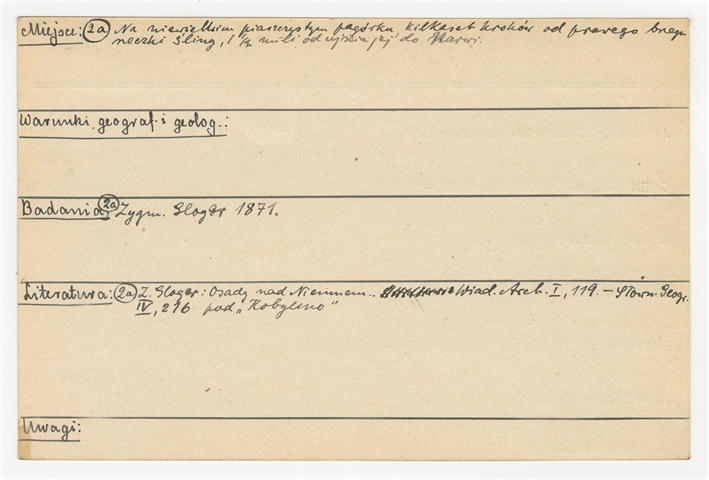 Miejsce: 2a Na niewielkim piaszczystym pagórku kilkaset kroków od prawego brzegu
rzeczki Śliny, 1 ½ mili od ujścia jej do Narwi.
Warunki geograf. i geolog.:
Badania: 2a Zygm. Gloger 1871.
Literatura: 2a Z. Gloger: Osady nad Niemnem.. Wiad. Arch. I, 119. – Słown. Geogr.
IV, 216 pod „Kobylino"
Uwagi: